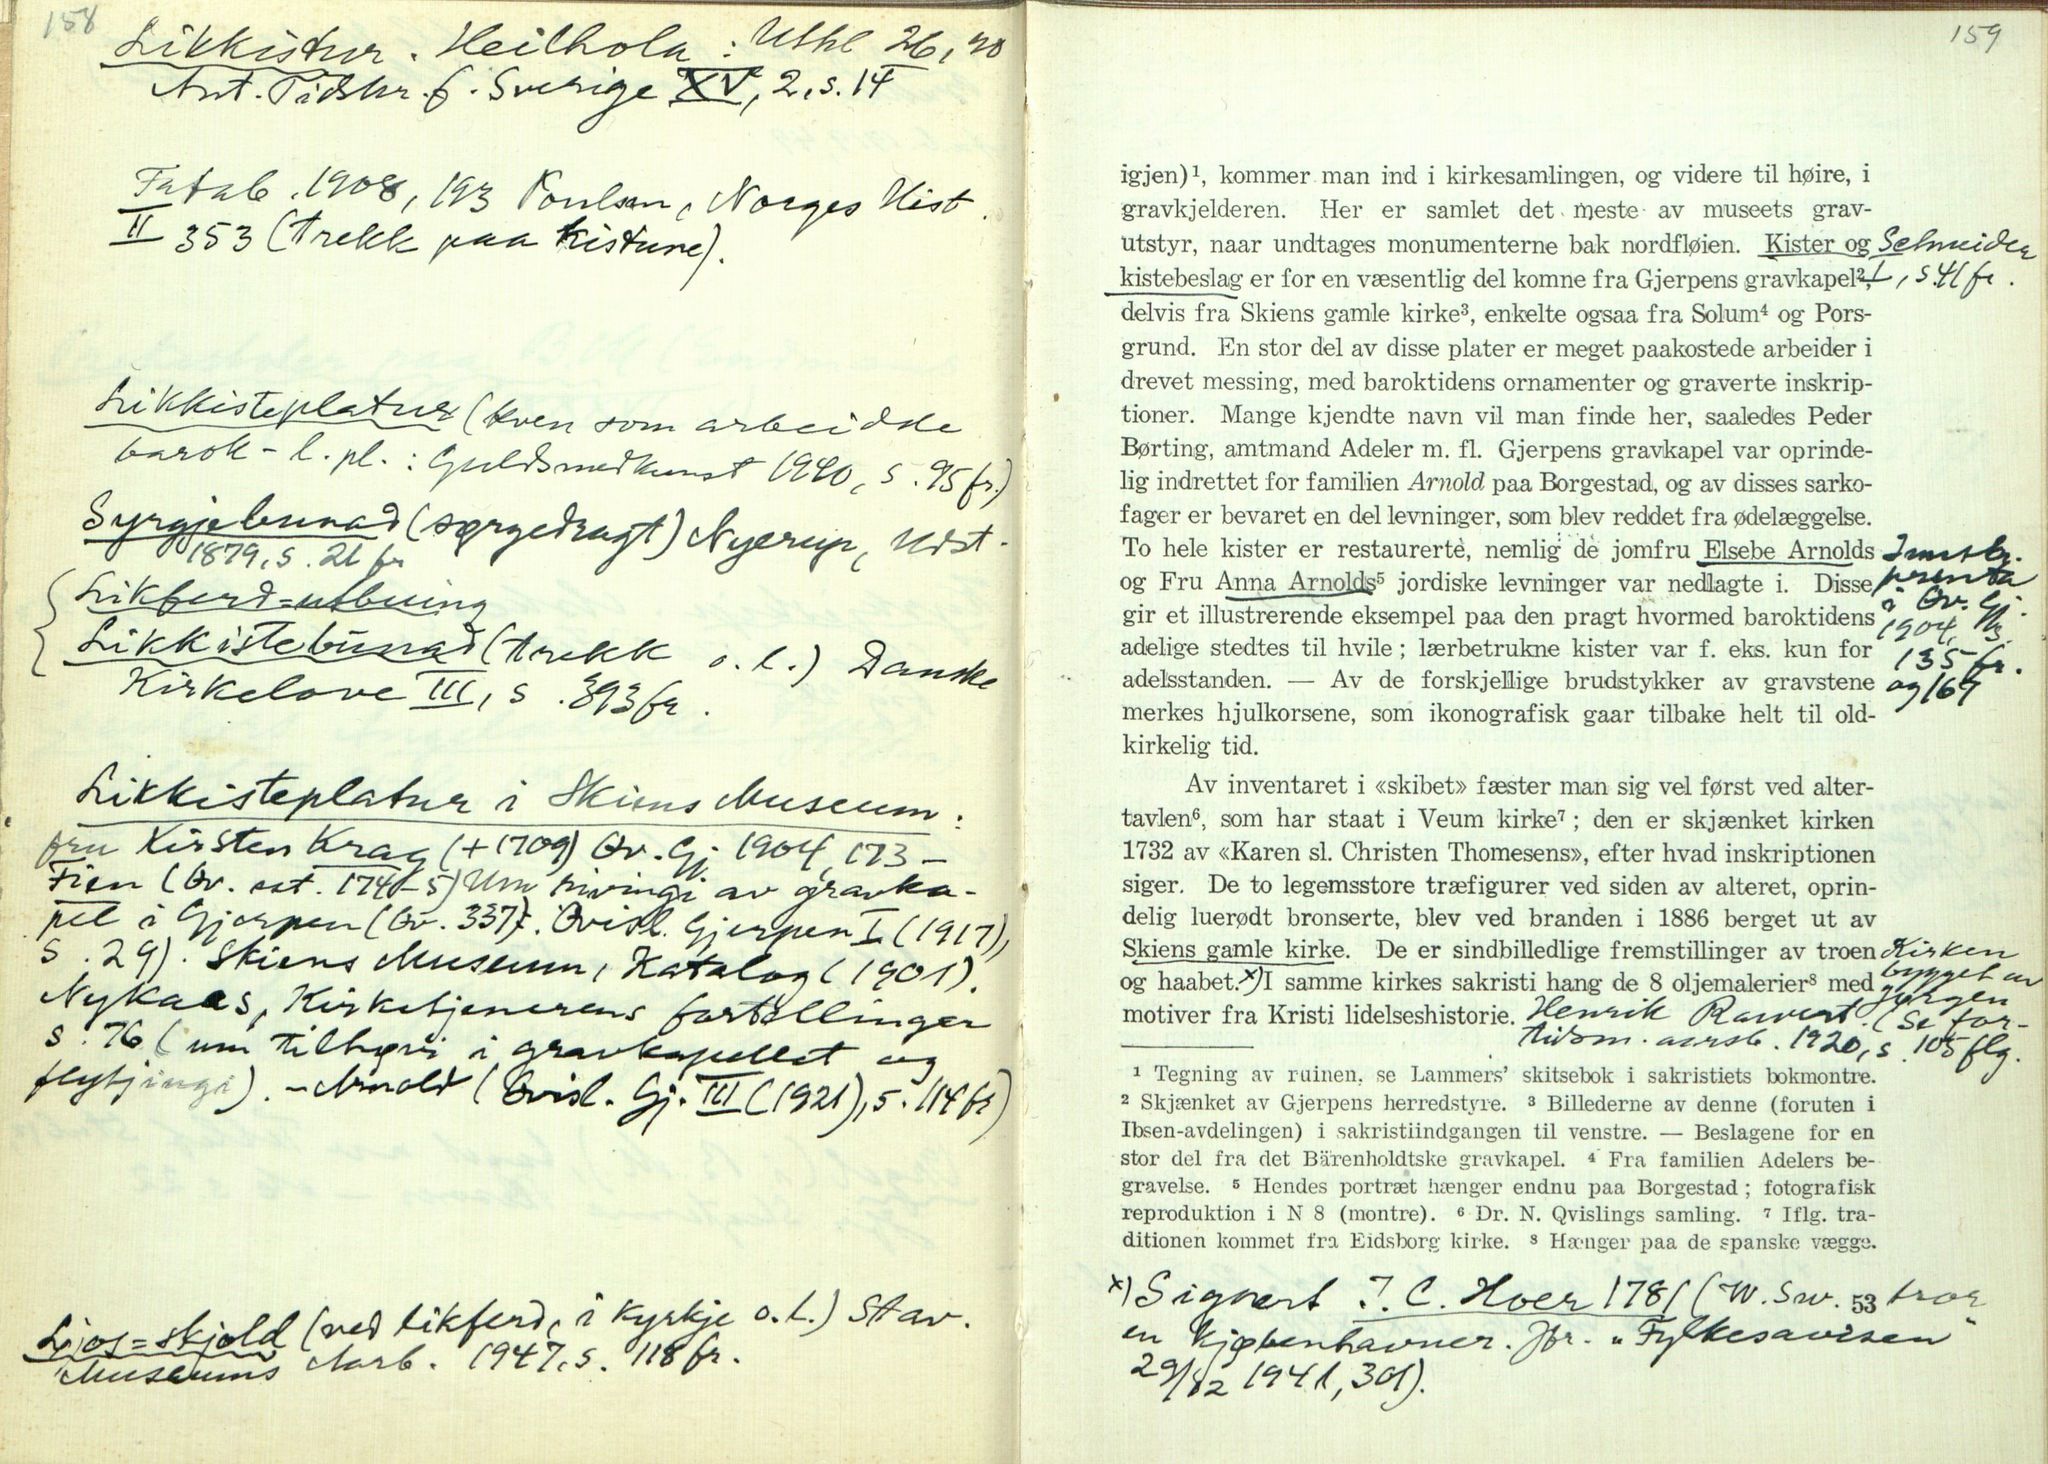 158
Likkistur. Heilhola: Uthl 26, 40
Ant. Tidskr. f. Sverige XV, 2, s. 14
Fatab. 1908, 193 Poulsen, Norges Hist.
II 353 (trekk paa kistune).
Likkisteplatur (kven som arbeidde
barok-l. pl.: Guldsmedkunst 1940, s. 95 fr.)
Syrgjebunad (sørgedragt) Nyerup, Udst.
1879, s. 21 fr
Likferd-utbuing
Likkistebunad (trekk o. l.) Danske
Kirkelove III, s. 393 fr.
Likkisteplatur i Skiens Museum:
fru Kirsten Krag (+1709) Qv. Gj. 1904, 173 –
Fien (Qv. ost. 174–5) Um rivingi av gravka-
pel i Gjerpen (Qv. 337). Qvisl. Gjerpen I (1917),
s. 29). Skiens Museum, Katalog (1901).
Nykaas, Kirketjenerens fortellinger
s. 76 (um tilhøvi i gravkapellet og
flytjingi). – Arnold (Qvisl. Gj. III (1921), s. 114 fr)
Ljos=skjold (ved likferd, i kyrkje o. l.) Stav.
Museums Aarb. 1947, s. 118 fr.
159
igjen)¹, kommer man ind i kirkesamlingen, og videre til høire, i
gravkjelderen. Her er samlet det meste av museets grav-
utstyr, naar undtages monumenterne bak nordfløien. Kister og Schneider
kistebeslag er for en væsentlig del komne fra Gjerpens gravkapel², I, s. 41 fr.
delvis fra Skiens gamle kirke³, enkelte ogsaa fra Solum⁴ og Pors-
grund. En stor del av disse plater er meget paakostede arbeider i
drevet messing, med baroktidens ornamenter og graverte inskrip-
tioner. Mange kjendte navn vil man finde her, saaledes Peder
Børting, amtmand Adeler m. fl. Gjerpens gravkapel var oprinde-
lig indrettet for familien Arnold paa Borgestad, og av disses sarko-
fager er bevaret en del levninger, som blev reddet fra ødelæggelse.
To hele kister er restaurerte, nemlig de jomfru Elsebe Arnolds
og Fru Anna Arnolds⁵ jordiske levninger var nedlagte i. Disse
gir et illustrerende eksempel paa den pragt hvormed baroktidens
adelige stedtes til hvile; lærbetrukne kister var f. eks. kun for
adelsstanden. — Av de forskjellige brudstykker av gravstene
merkes hjulkorsene, som ikonografisk gaar tilbake helt til old-
kirkelig tid.
Innskr.
prenta
i Qv. Gj.
1904,
135 fr.
og 169
Av inventaret i «skibet» fæster man sig vel først ved alter-
tavlen⁶, som har staat i Veum kirke⁷; den er skjænket kirken
1732 av «Karen sl. Christen Thomesens», efter hvad inskriptionen
siger. De to legemsstore træfigurer ved siden av alteret, oprin-
delig luerødt bronserte, blev ved branden i 1886 berget ut av
Skiens gamle kirke. De er sindbilledlige fremstillinger av troen
og haabet.x) I samme kirkes sakristi hang de 8 oljemalerier⁸ med
motiver fra Kristi lidelseshistorie.
Kirken
bygget av
Jørgen
Henrik Rawert. (Se for-
tidsm. aarsb. 1920, s. 105 flg.
¹ Tegning av ruinen, se Lammers’ skitsebok i sakristiets bokmontre.
² Skjænket av Gjerpens herredstyre. ³ Billederne av denne (foruten i
Ibsen-avdelingen) i sakristiindgangen til venstre. — Beslagene for en
stor del fra det Bärenholdtske gravkapel. ⁴ Fra familien Adelers be-
gravelse. ⁵ Hendes portræt hænger endnu paa Borgestad; fotografisk
reproduktion i N 8 (montre). ⁶ Dr. N. Qvislings samling. ⁷ Iflg. tra-
ditionen kommet fra Eidsborg kirke. ⁸ Hænger paa de spanske vægge.
x) Signert J. C. Hoer 1781 (W. Sw. 53 tror
en kjøbenhavner. Jfr. „Fylkesavisen”
29/12 1941, 301).